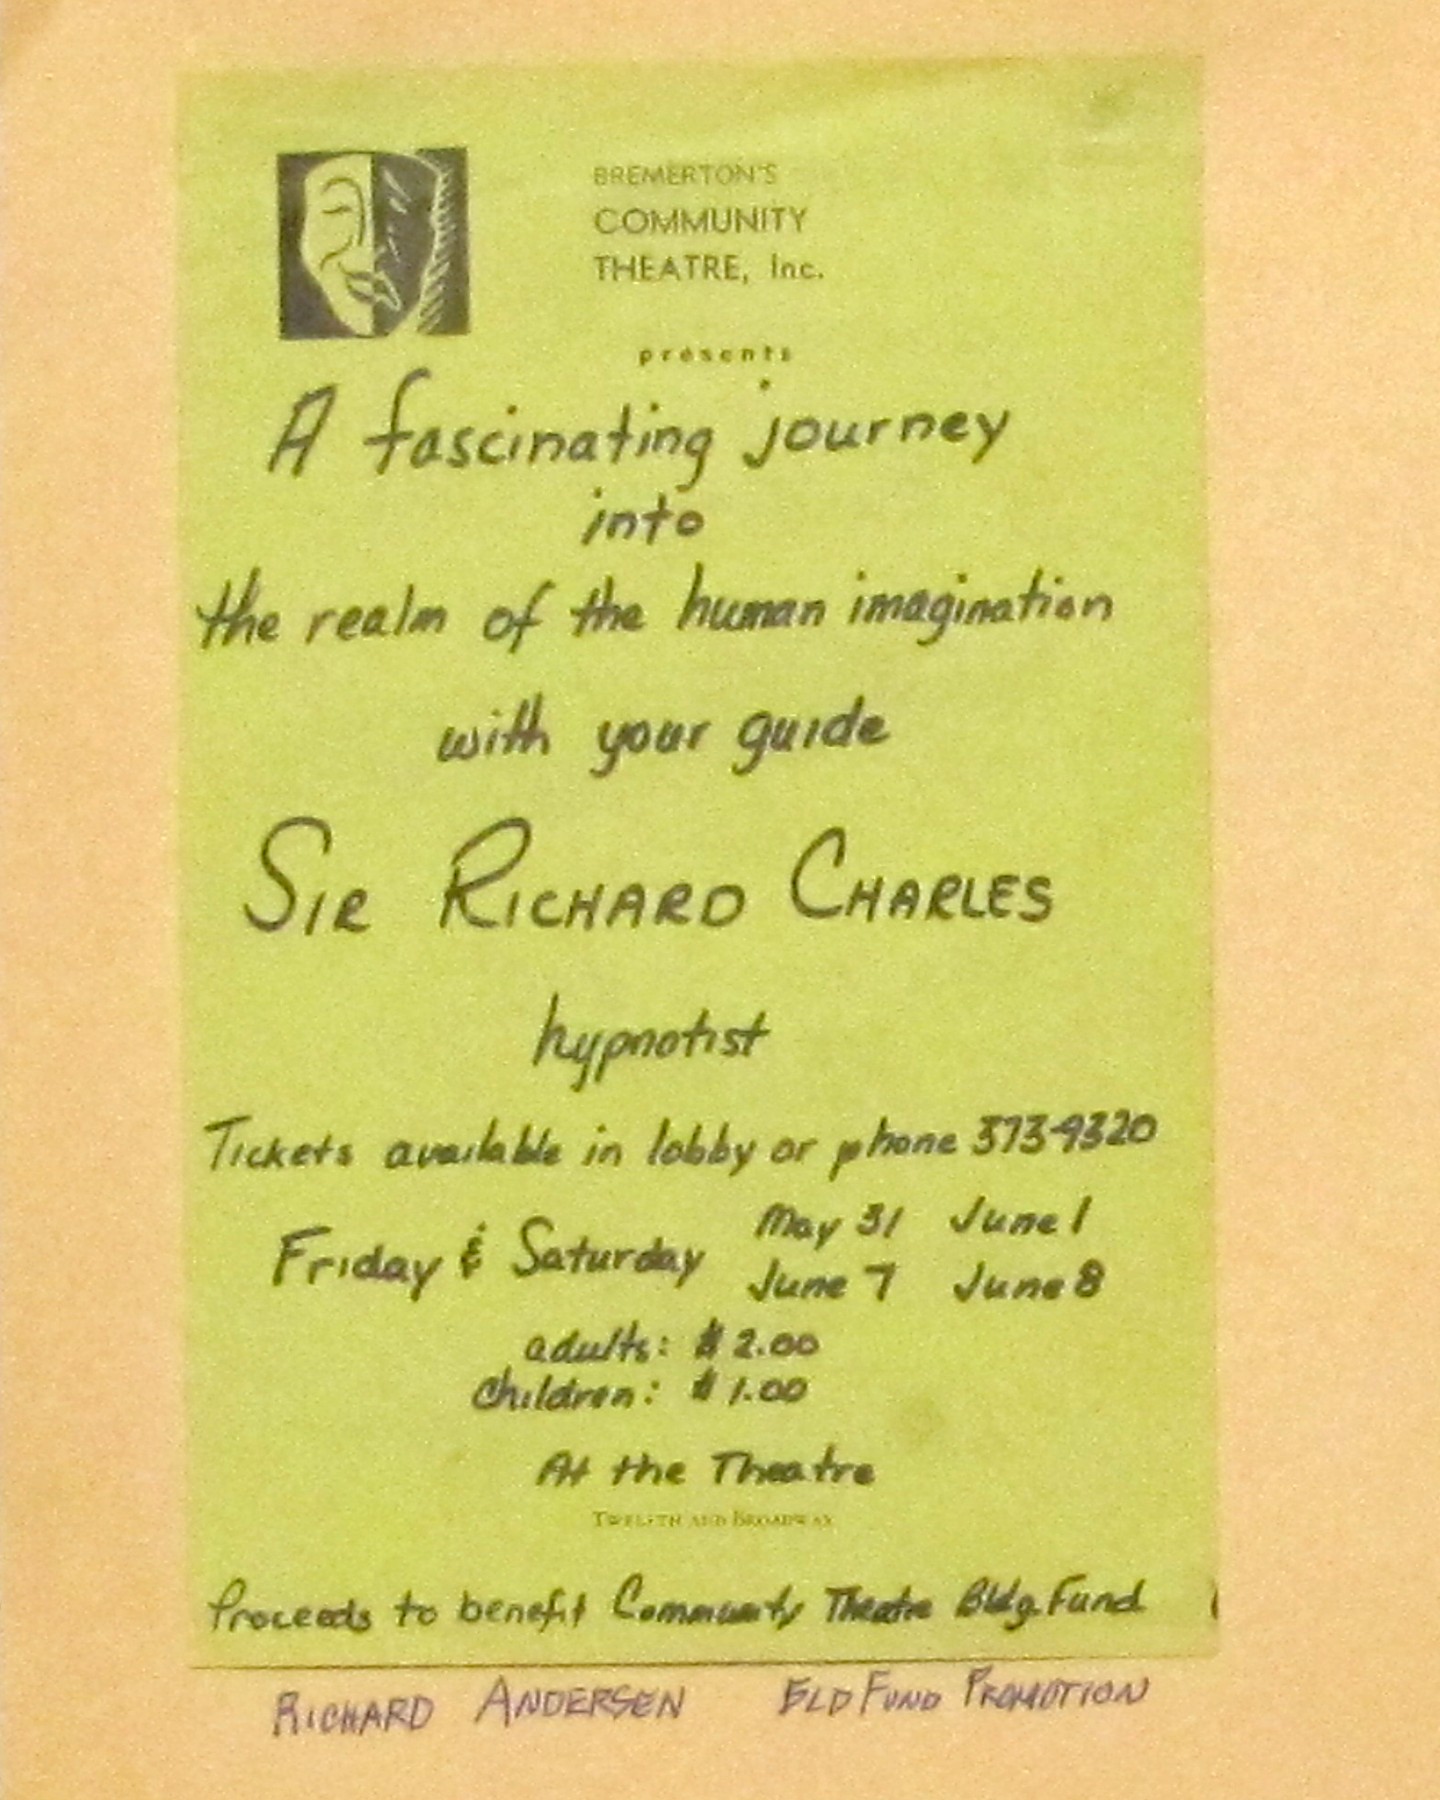 BREMERTON'S
COMMUNITY
THEATRE, Inc.
presents
A fascinating journey
into
the realm of the human imagination
with your guide
SIR RICHARD CHARLES
hypnotist
Tickets available in lobby or phone 373-9320
Friday & Saturday May 31 June 1
June 7 June 8
adults: $2.00
children: $1.00
At the Theatre
TWELFTH AND BROADWAY
Proceeds to benefit Community Theatre Bldg. Fund
RICHARD ANDERSEN BLD FUND PROMOTION